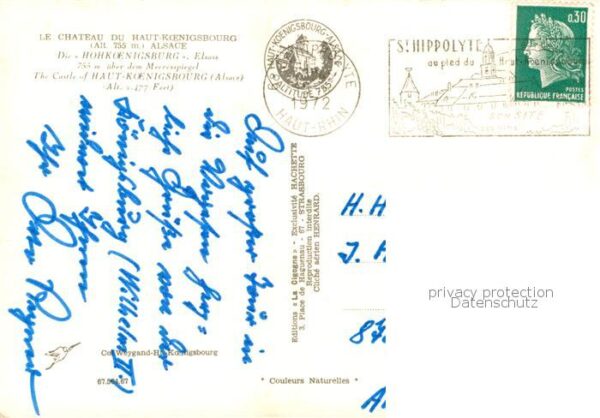 LE CHATEAU DU HAUT-KŒNIGSBOURG
(Alt. 755 m.) ALSACE
Die « HOHKŒNIGSBURG », Elsass
755 m über dem Meeresspiegel
The Castle of HAUT-KŒNIGSBOURG (Alsace)
(Alt. 2.477 Feet)
HAUT-KŒNIGSBOURG-ALSACE
ALTITUDE 755
1972
HAUT-RHIN
ST HIPPOLYTE
au pied du Haut-Kœnigsbourg
SON SITE
0,30
POSTES
REPUBLIQUE FRANÇAISE
Auf großer Tour in
die Vogesen
Grüße von der
Königsburg (Wilhelm II.)
Ihr
Editions « La Cigogne » - Exclusivité HACHETTE
3, Place de Haguenau - 67 - STRASBOURG
Reproduction interdite
Cliché aérien HENRARD.
H. H
J. H
privacy protection
Datenschutz
Weygand-Ht Kœnigsbourg
" Couleurs Naturelles "